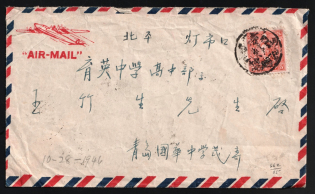 北平 灯市口
"AIR-MAIL"
育英中學高中部
王竹生先生 啓
青島國華中學 寄
10-28-1946